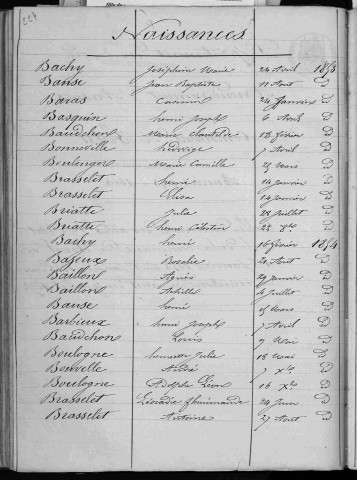 224
Naissances
Bachy Joséphine Marie 24 Avril 1853
Banse Jean Baptiste 11 Aout D
Baras Casimir 24 Janvier D
Basquin henri Joseph 6 Avril D
Baudchon Marie Clautilde 18 février D
Bonneville hedwige 7 Avril D
Boulenger Marie Camille 25 Mars D
Brasselet henri 14 Janvier D
Brasselet Elisa 14 Janvier D
Briatte Julie 21 Juillet D
Briatte henri Célestin 22 8bre D
Bachy henri 16 février 1854
Bajeux Rosalie 20 Aout D
Baillon Agnès 29 Janvier D
Baillon Achille 6 Juillet D
Banse henri 15 Mars D
Barbieux henri Joseph 7 Avril D
Baudchon Louis 9 Mai D
Boulogne Julie 18 Mai D
Bouvelle André 7 Xbre D
Boulogne Adolphe Léon 16 Xbre D
Brasselet Léocadie 24 Juin D
Brasselet Antoine 27 Aout D